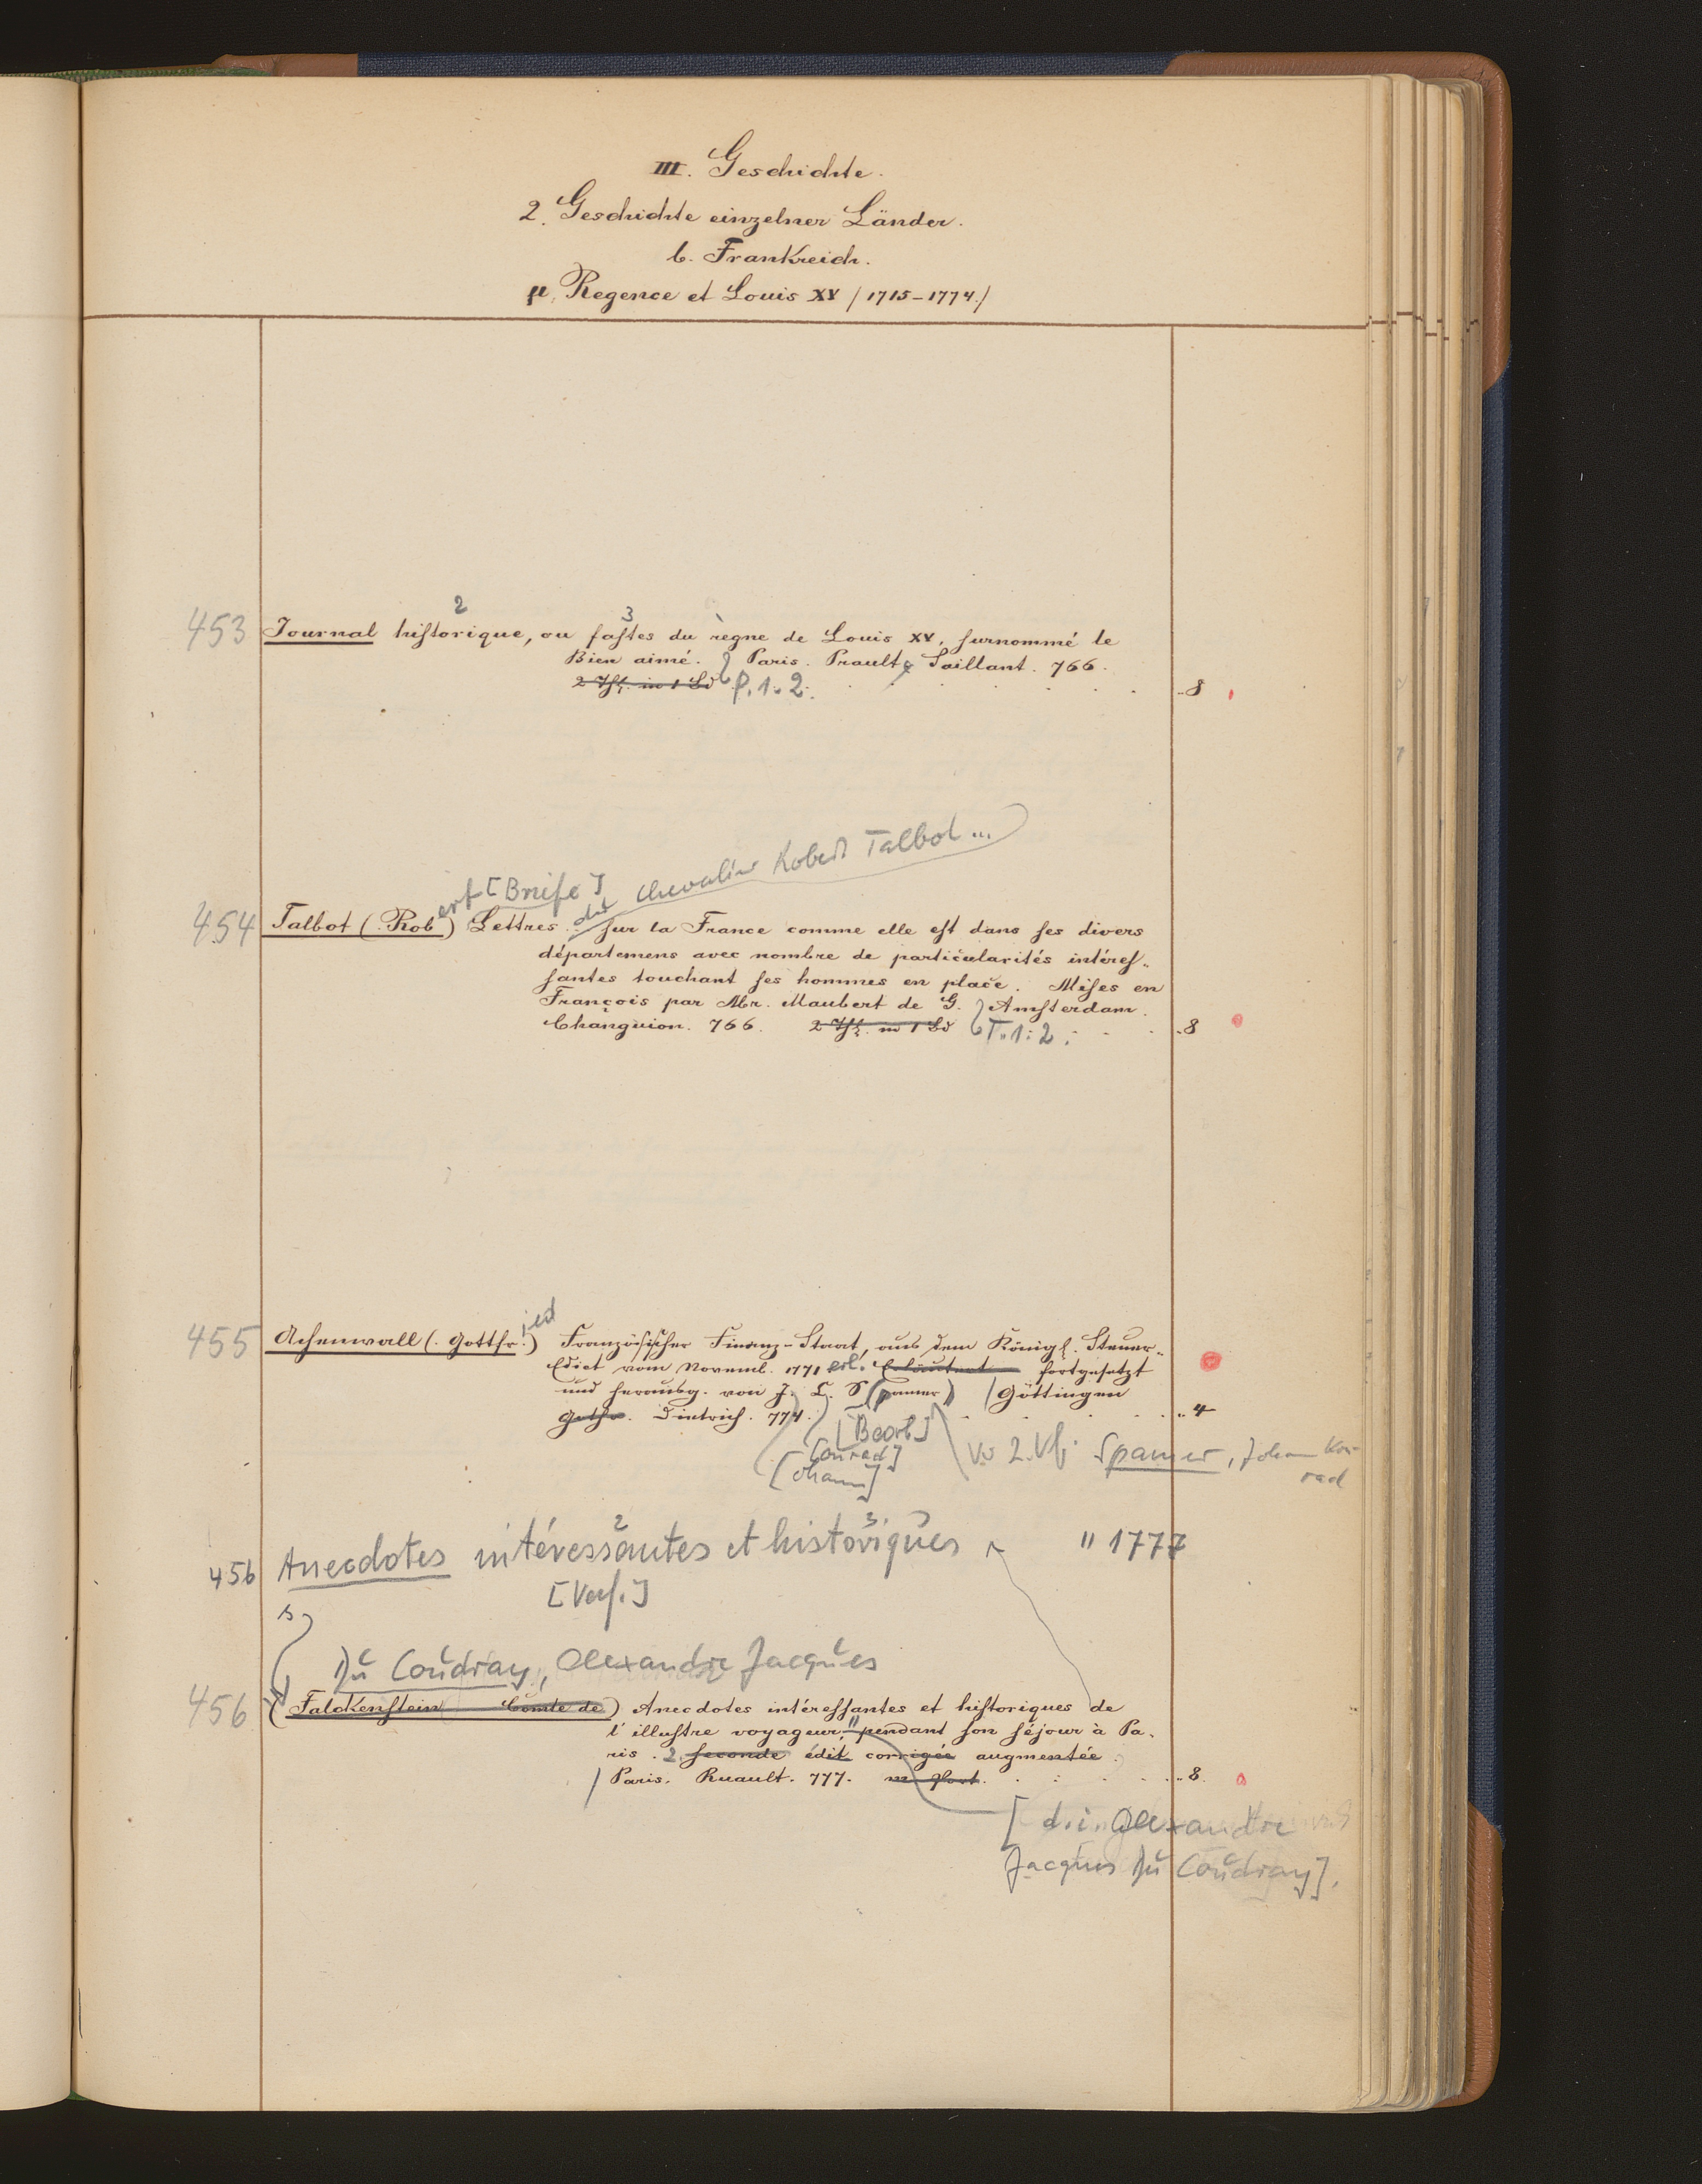 III. Geschichte.
2. Geschichte einzelner Länder.
b. Frankreich.
µ. Regence et Louis XV /1715-1774./
2 3
453 Journal historique, ou fastes du règne de Louis XV. surnommé le
Bien aimé. Paris. Prault & Saillant. 766.
2 Thle. in 1 Bd P. 1. 2. 8
ert [Briefe] des Chevalier Robert Talbot ...
454 Talbot (. Rob ) Lettres sur la France comme elle est dans ses divers
départemens avec nombre de particularités intéres-
santes touchant ses hommes en place. Mises en
François par Mr. Maubert de G. Amsterdam.
Changuion. 766. 2 Thle. in 1 Bd T. 1. 2. 8
ied
455 Achenwall (. Gottfr.) Französischer Finanz-Staat, aus dem Königl. Steuer-
Edict vom Novemb. 1771 erl. Erläutert fortgesetzt
und herausg. von J. C. S (pamer) Göttingen
Gotha. Dietrich. 774. 4
[Bearb.]
[onrad]
[ohann]
Spamer, Johann Kon-
rad
2 3
456 Anecdotes intéressantes et historiques " 1777
[Verf.]
s
Du Coudray, Alexandre Jacques
456 (Falckenstein Comte de) Anecdotes intéressantes et historiques de
l'illustre voyageur, pendant son séjour à Pa-
ris. 2. seconde édit corrigée augmentée.
Paris. Ruault. 777. 8.
[d.i. Alexandre
Jacques Du Coudray].